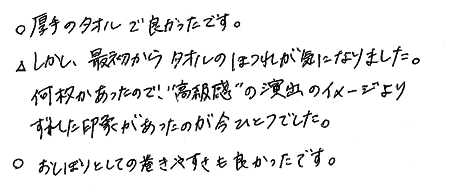 ○ 厚手のタオルで良かったです。
△ しかし、最初からタオルのほつれが気になりました。
何枚かあったので、"高級感"の演出のイメージより
ずれた印象があったのが今ひとつでした。
○ おしぼりとしての巻きやすさも良かったです。